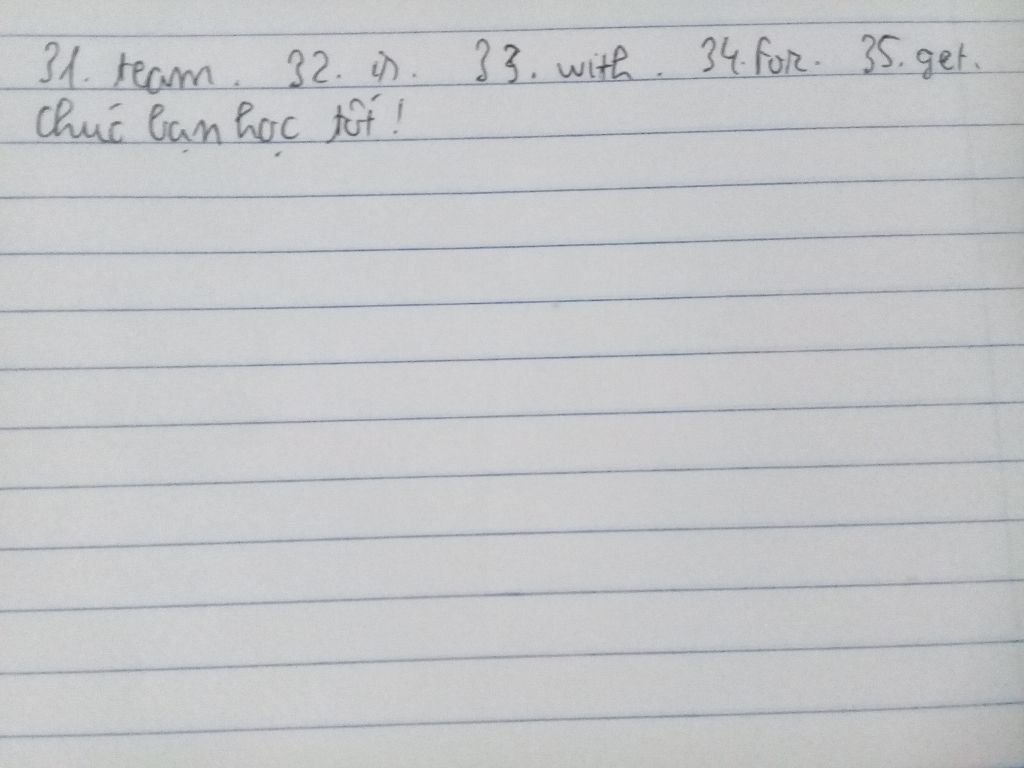 31. team. 32. in. 33. with. 34. for. 35. get.
Chúc bạn học tốt!